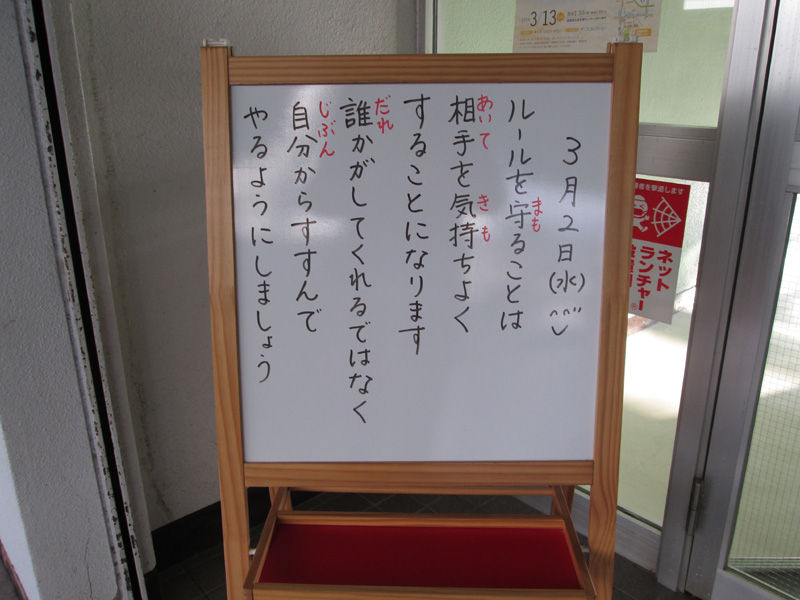 3月2日(水)
ルールを守ることは
まも
相手を気持ちよく
あいて
きも
することになります
誰かがしてくれるではなく
だれ
自分からすすんで
じぶん
やるようにしましょう
3/13
を撃退します
ネット
ランチャー